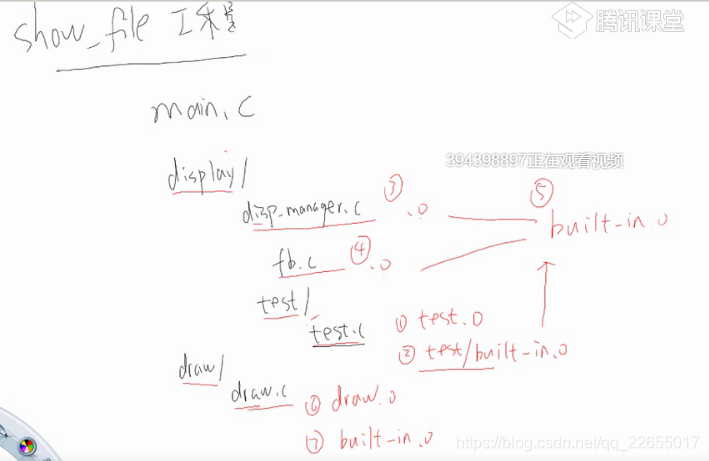 show_file 工程
腾讯课堂
main.c
394398897正在观看视频
display/
disp_manager.c ③ .o
⑤ built-in.o
fb.c ④ .o
test/
test.c ① test.o
② test/built-in.o
draw/
draw.c ⑥ draw.o
⑦ built-in.o
https://blog.csdn.net/qq_22655017